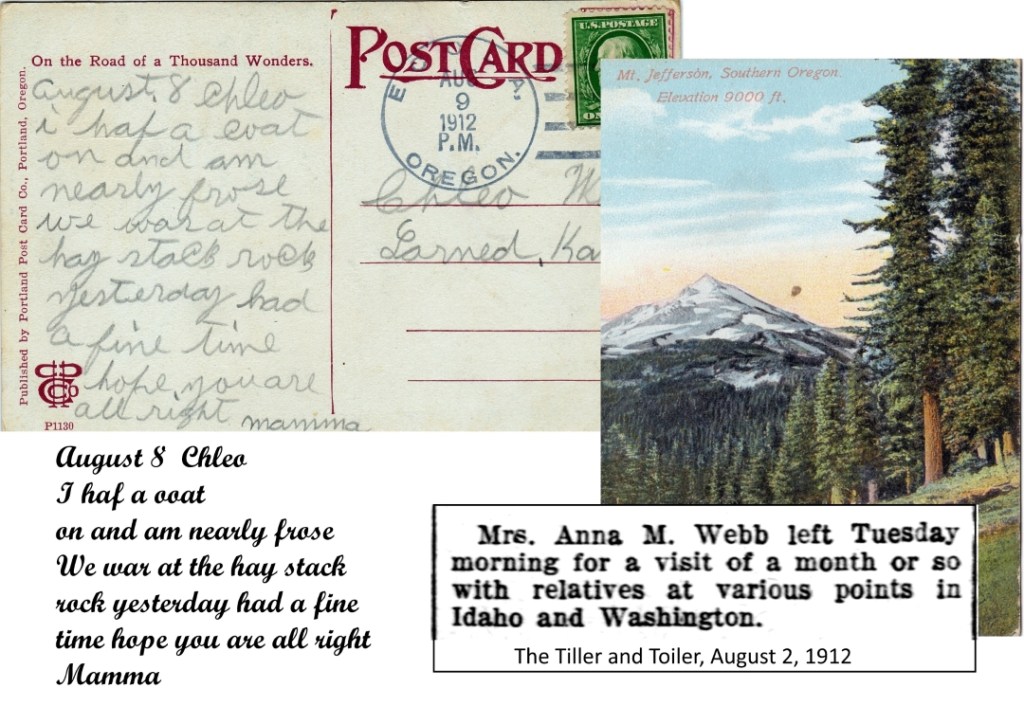 On the Road of a Thousand Wonders.
POST CARD
U.S. POSTAGE
AUG
9
1912
P.M.
OREGON.
August 8 Chleo
i haf a coat
on and am
nearly frose
we war at the
hay stack rock
yesterday had
a fine time
hope you are
all right
mamma
Chleo
Larned, Ka
Published by Portland Post Card Co., Portland, Oregon.
P1130
Mt. Jefferson, Southern Oregon.
Elevation 9000 ft.
August 8 Chleo
I haf a ooat
on and am nearly frose
We war at the hay stack
rock yesterday had a fine
time hope you are all right
Mamma
Mrs. Anna M. Webb left Tuesday
morning for a visit of a month or so
with relatives at various points in
Idaho and Washington.
The Tiller and Toiler, August 2, 1912